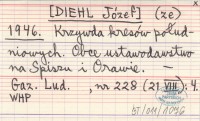 [DIEHL Józef] (ze)
1946. Krzywda kresów połud-
niowych. Obce ustawodawstwo
na Spiszu i Orawie. —
Gaz. Lud. , nr 228 (21 VIII): 4.
WHP